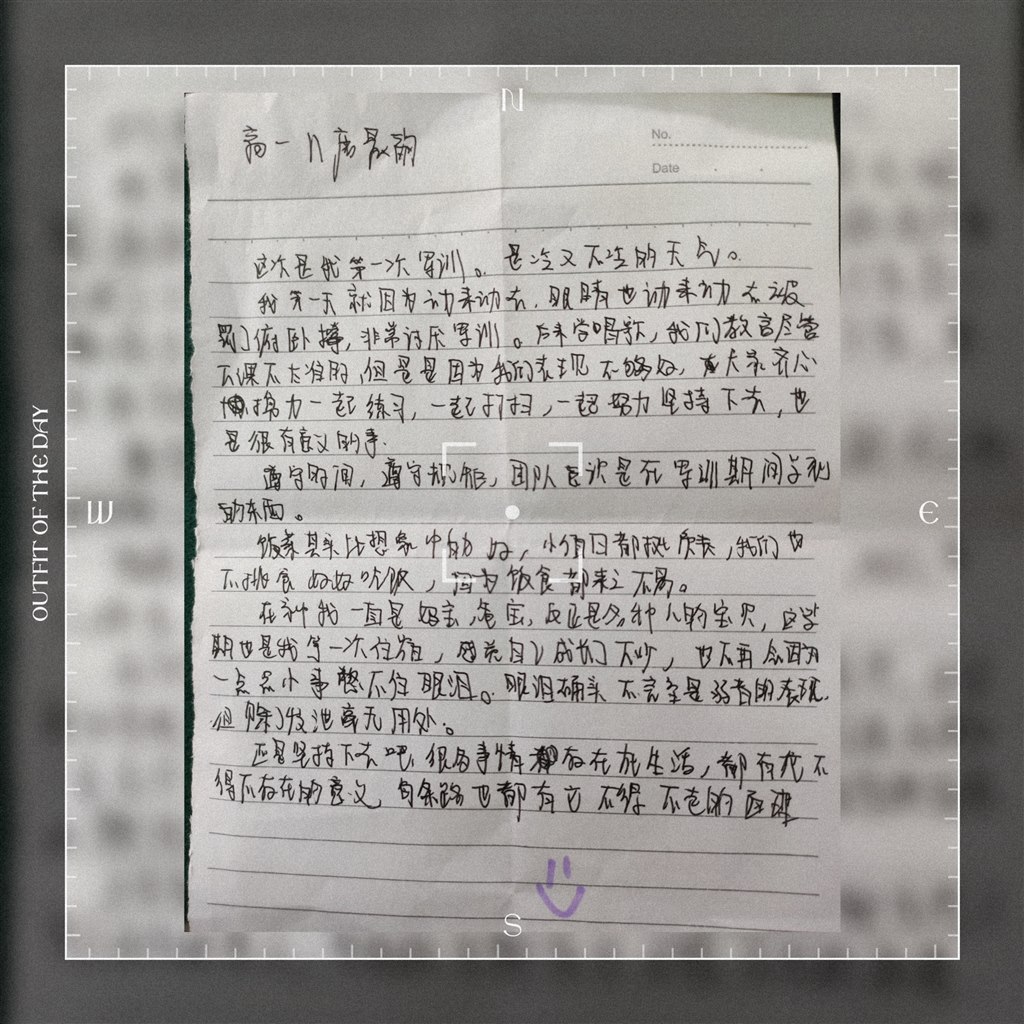 N
高一 11
No.
Date
这次是我第一次军训。是冷又不冷的天气。
我第一天就因为动来动去,眼睛也动来动去被
罚俯卧撑,非常讨厌军训。后来学唱歌,我们教官尽管
不太准的,但是是因为我们表现不够好,大家齐心
努力一起练习,一起打扫,一起努力坚持下去,也
是很有意义的事.
遵守时间,遵守规矩,团队意识是在军训期间学到
的东西。
饭菜其实比想象中的好,我们也
不挑食好好吃饭,因为饭食都来之不易。
在家我一直是宝,反正是各种人的宝贝,这学
期也是我第一次住宿,感觉自己成长了不少,也不再会因为
一点点小事憋不住眼泪。眼泪确实不完全是弱者的表现.
但除了发泄毫无用处。
还是坚持下去吧,很多事情存在于生活,都有它不
得不存在的意义,每条路也都有它不得不走的
W
E
S
OUTFIT OF THE DAY